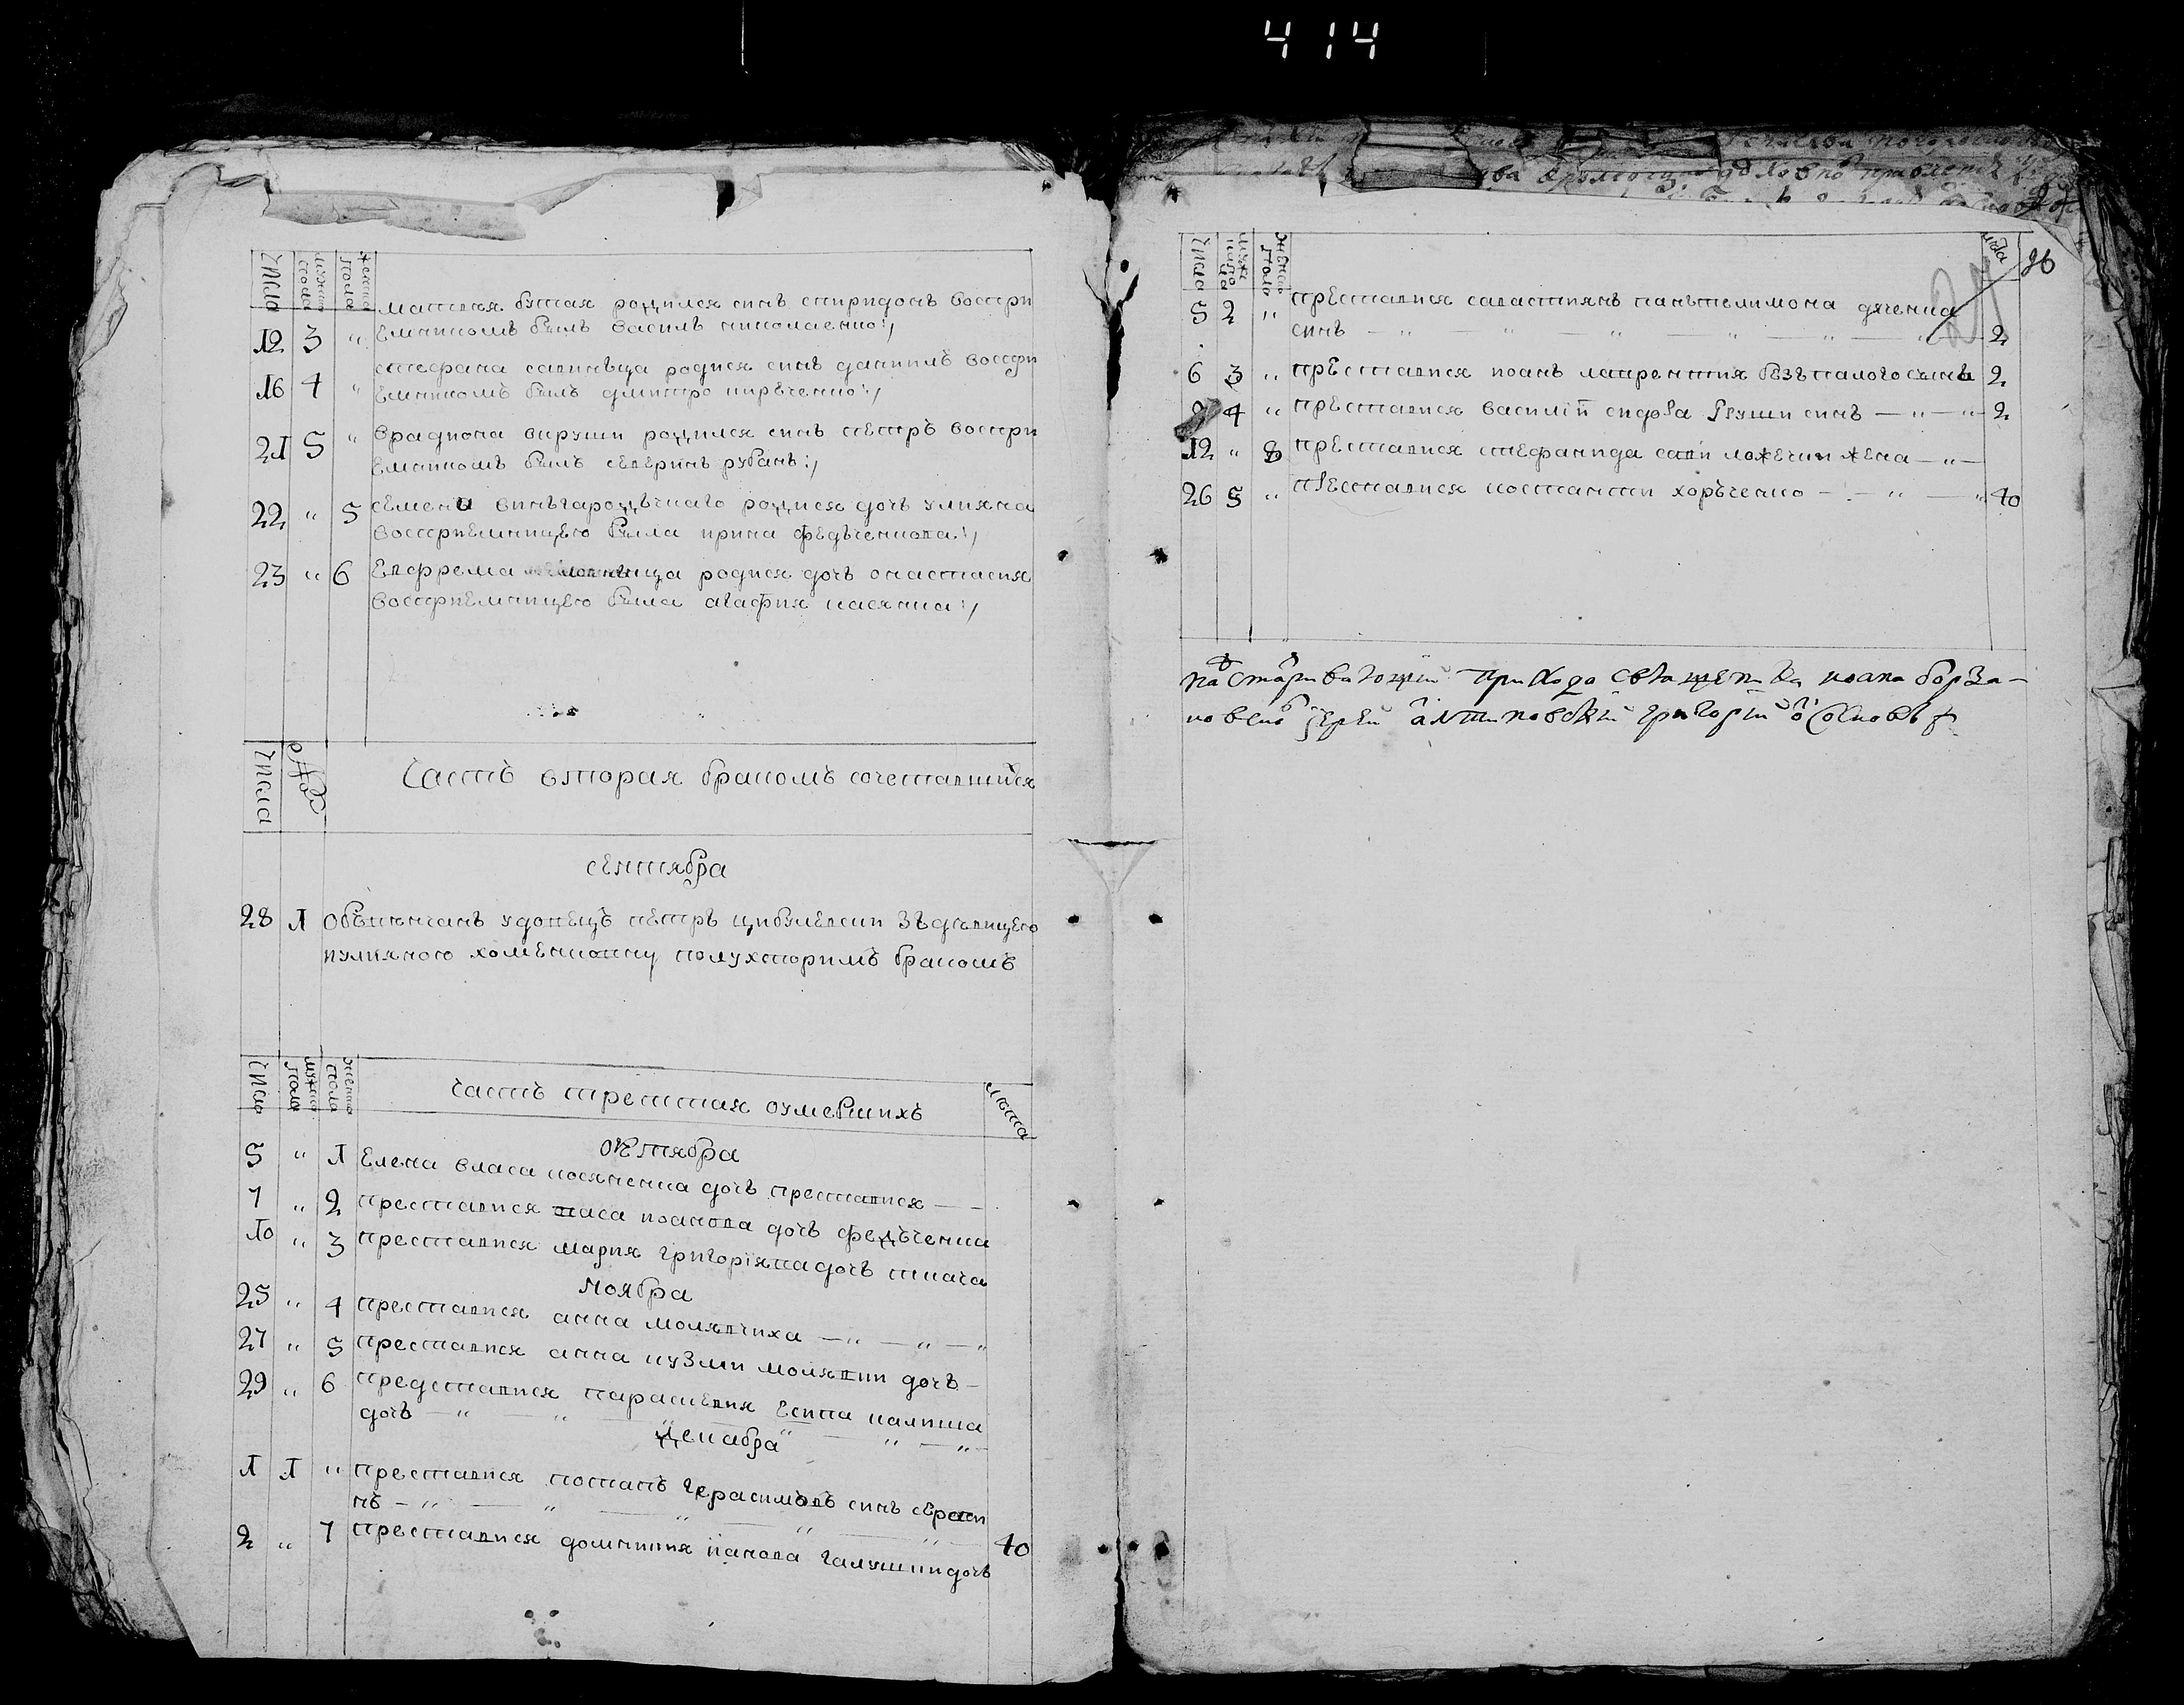 414
числа
мужска пола
женска пола
матвея бутая родился синъ спиридонъ воспри
12 3 " емникомъ билъ василь николаенко:/
стефана савинъца родися синъ даниилъ воспри
16 4 " емникомъ билъ дмитро кирѣченко:/
21 5 " ърадиона вируши родился синъ пѣтръ воспри
емникомъ билъ северинъ рубанъ:/
22 " 5 семена винъгародъчкаго родися дочъ улияна
восприемницею била ирина федъченкова:/
23 " 6 Евфрема родися дочъ онастасия
восприемницею била агафия касянка:/
числа
№
Частъ вторая бракомъ сочетавшийся
сентября
28 1 Объвѣнчанъ удовецъ пѣтръ цибулевски зъ дѣвицею
иулияною хоменковну полувторимъ бракомъ
числа
мужска пола
женска пола
частъ третшая оумершихъ
лѣта
октября
5 " 1 Елена власа косяненка дочъ преставися — —
7 " 2 преставися васа иоанова дочъ федъченка
10 " 3 преставися мария григориява дочъ ткача
ноября
25 " 4 преставися анна молявчиха — " — " — "
27 " 5 преставися анна кузми молявки дочъ —
29 " 6 представися параскевия Есипа калина
дочъ — " — " — " — " — " — "
декабра
1 1 " преставися потапъ герасимовъ синъ
нъ — " — " — " — " — "
2 " 7 преставися домникия иванова галушки дочъ 40
числа
мужска пола
женска пола
лѣта
26
21
5 2 " преставися савастиянъ панътелимона дяченка
синъ — " — " — " — " — " — " — 2
6 3 " преставися иоанъ лаврентия безъпалого синъ 2
9 4 " преставися василий сидора гкуши синъ — " — " 2
12 " 8 преставися стефанида сави ложечки жена — " —
26 5 " преставися костанти хоръченко — — " — " 40
настоятивающий прихода священика иоана борза-
ковско иерей антиповский григорий осоковъ